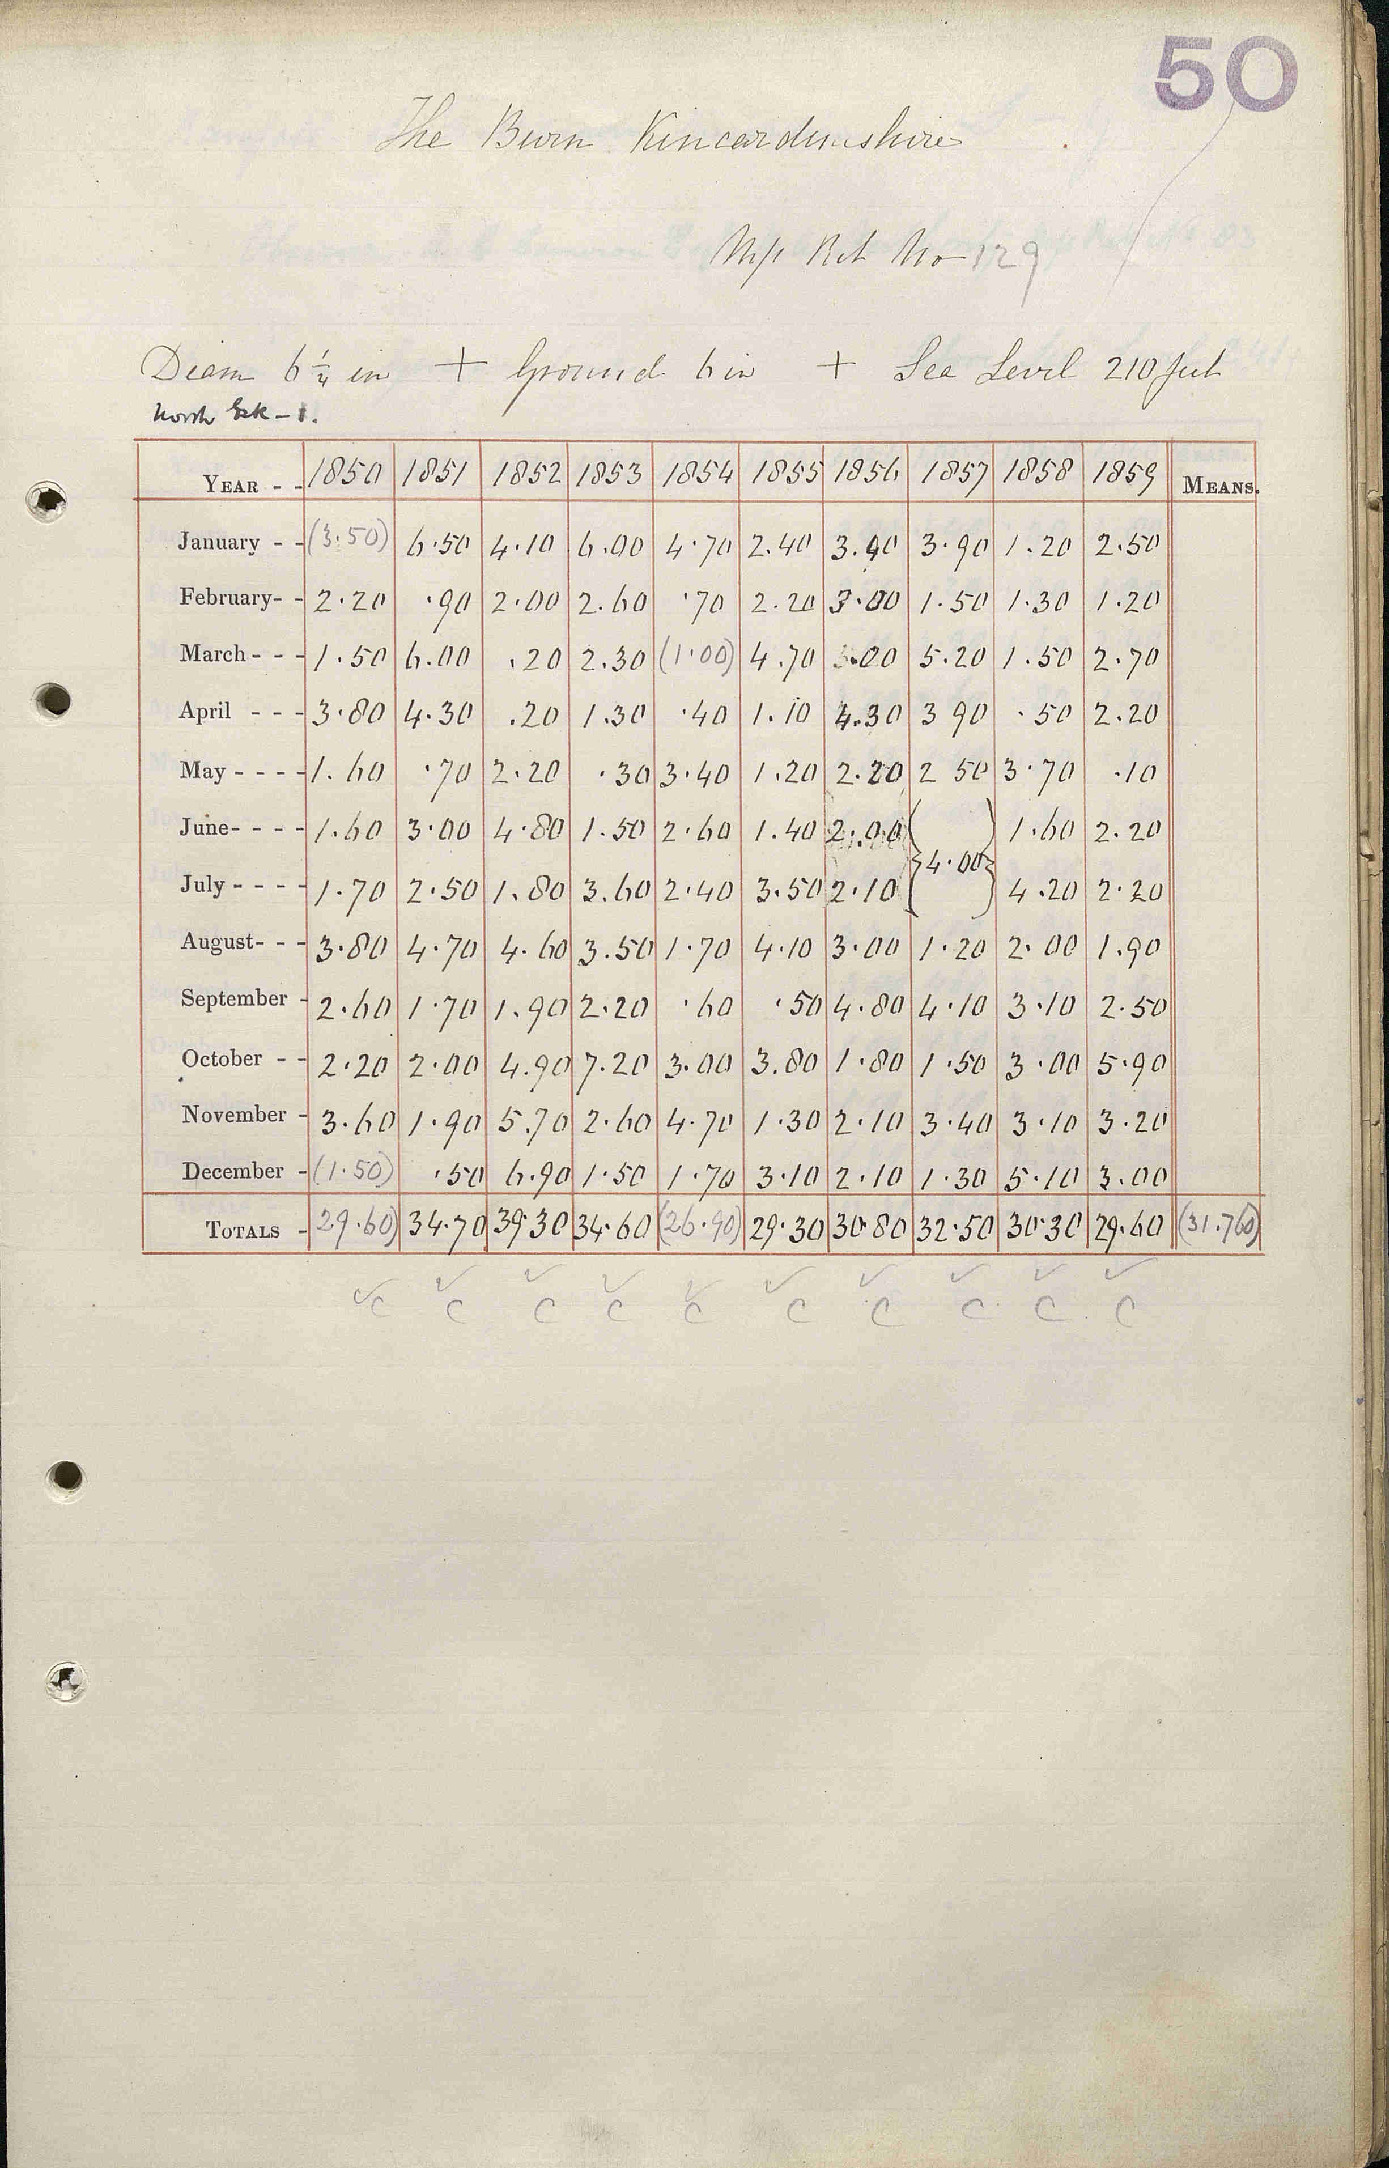 50
The Burn Kincardineshire
M/s Ret No 129
Diam 6 1/4 in + Ground 6 in + Sea Level 210 feet
North Esk - 1.
YEAR - - 1850 1851 1852 1853 1854 1855 1856 1857 1858 1859 MEANS.
January - - (3.50) 6.50 4.10 6.00 4.70 2.40 3.40 3.90 1.20 2.50
February- - 2.20 .90 2.00 2.60 .70 2.20 3.00 1.50 1.30 1.20
March - - - 1.50 6.00 .20 2.30 (1.00) 4.70 .00 5.20 1.50 2.70
April - - - 3.80 4.30 .20 1.30 .40 1.10 4.30 3 90 .50 2.20
May - - - - 1.60 .70 2.20 .30 3.40 1.20 2.20 2 50 3.70 .10
June- - - - 1.60 3.00 4.80 1.50 2.60 1.40 2.00 { } 1.60 2.20
4.00
July - - - - 1.70 2.50 1.80 3.60 2.40 3.50 2.10 4.20 2.20
August- - - 3.80 4.70 4.60 3.50 1.70 4.10 3.00 1.20 2.00 1.90
September - 2.60 1.70 1.90 2.20 .60 .50 4.80 4.10 3.10 2.50
October - - 2.20 2.00 4.90 7.20 3.00 3.80 1.80 1.50 3.00 5.90
November - 3.60 1.90 5.70 2.60 4.70 1.30 2.10 3.40 3.10 3.20
December - (1.50) .50 6.90 1.50 1.70 3.10 2.10 1.30 5.10 3.00
TOTALS - 29.60) 34.70 39.30 34.60 (26.90) 29.30 30.80 32.50 30.30 29.60 (31.760)
✓ ✓ ✓ ✓ ✓ ✓ ✓ ✓ ✓ ✓
C C C C C C C C C C